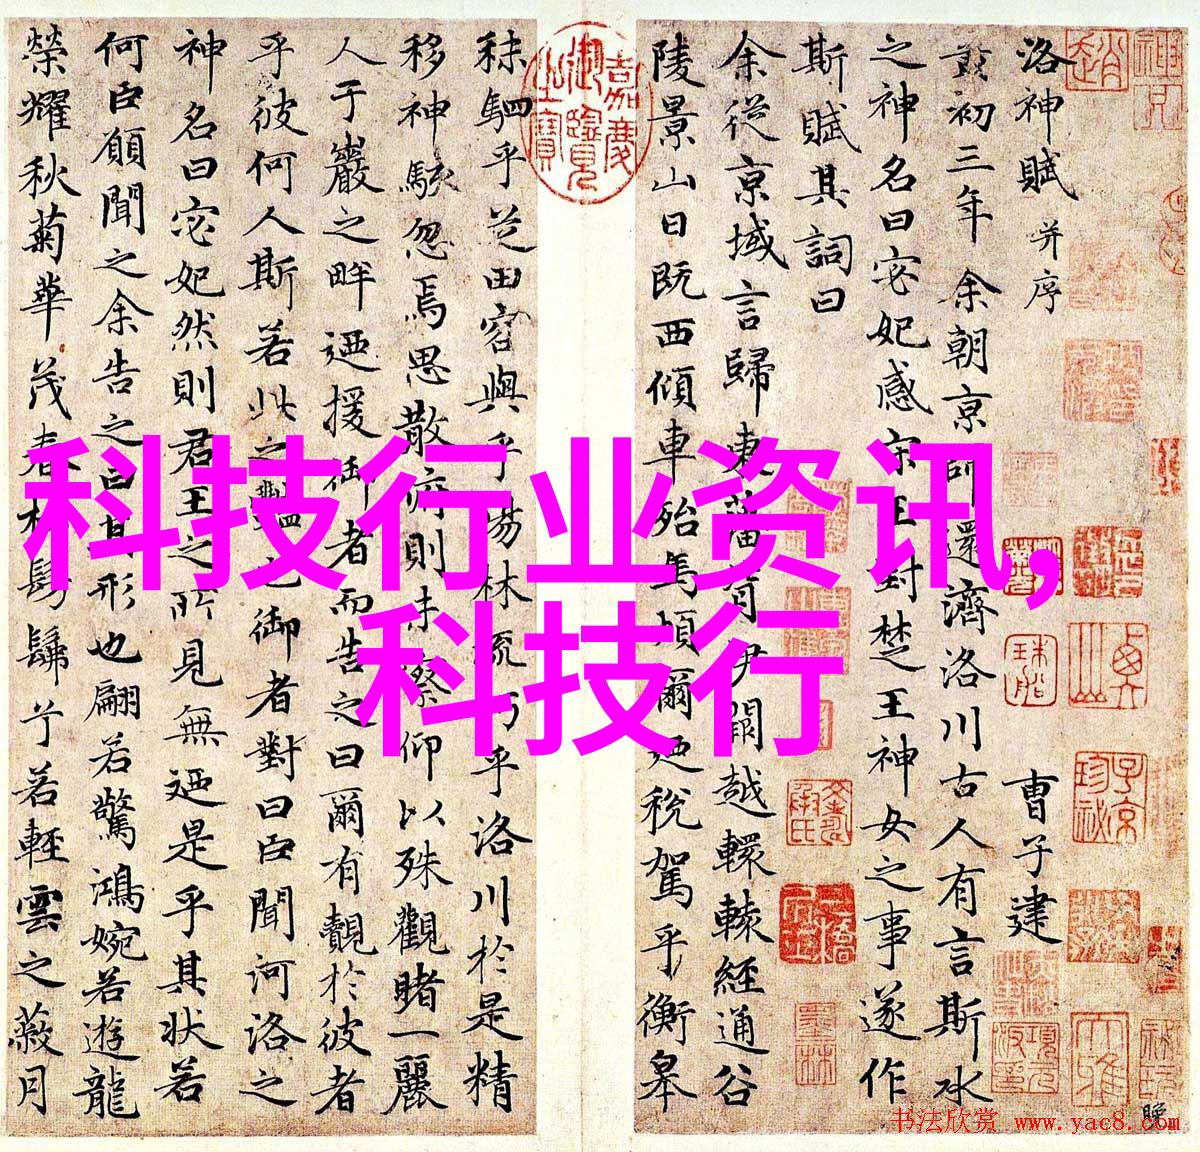 洛神賦 并序 曹子建
黄初三年余朝京師還濟洛川古人有言斯水
之神名曰宓妃感宋王對楚王神女之事遂作
斯賦其詞曰
余從京域言歸東藩背伊闕越轘轅經通谷
陵景山日既西傾車殆馬煩爾廼稅駕乎蘅皋
秣駟乎芝田容與乎楊林流眄乎洛川於是精
移神駭忽焉思散俯則未察仰以殊觀睹一麗
人于巖之畔廼援御者而告之曰爾有覿於彼者
乎彼何人斯若此之豔也御者對曰臣聞河洛之
神名曰宓妃然則君王之所見無廼是乎其状若
何臣願聞之余告之曰其形也翩若驚鴻婉若遊龍
榮耀秋菊華茂春松髣髴兮若輕雲之蔽月
嘉慶御覽之寶
科技行业资讯,
科技行
书法欣赏 www.yac8.com